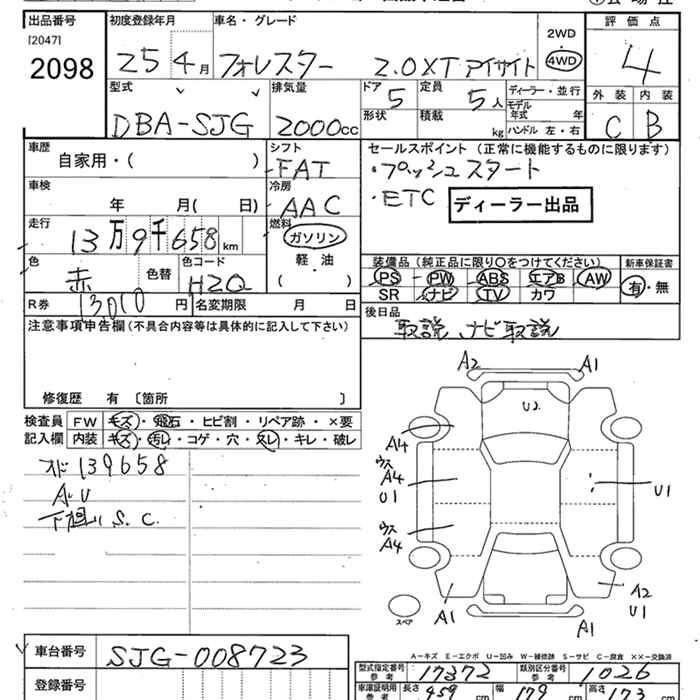 出品番号 初度登録年月 車名・グレード 評価点
[2047] 2098 25 4月 フォレスター 2.0XT アイサイト 2WD・4WD 4
型式 排気量 ドア 5 定員 5人 ディーラー・並行 外装 内装
DBA-SJG 2000cc 形状 積載 kg モデル年式 年 ハンドル 左・右 C B
車歴 シフト セールスポイント(正常に機能するものに限ります)
自家用・( ) FAT ・プッシュスタート
車検 冷房 ・ETC ディーラー出品
年 月( 日) AAC
走行 燃料
13万9千658km ガソリン
色 色替 色コード 軽油 装備品(純正品に限り○をつけてください) 新車保証書
赤 H2Q ( ) PS PW ABS エアB AW 有・無
R券 13,010円 名変期限 月 日 SR ナビ TV カワ
注意事項申告欄(不具合内容等は具体的に記入して下さい) 後日品
取説 ナビ取説
修復歴 有〔箇所 〕
検査員 FW キズ・飛石・ヒビ割・リペア跡・×要
記入欄 内装 キズ・汚レ・コゲ・穴・スレ・キレ・破レ
オド139658
A.U
下廻り S.C.
A2 A1
U2
A4
ウス
A4
U1 U1
ウス
A4
A2
A1 U1
A1
スペア
車台番号 SJG-008723
登録番号
A-キズ E-エクボ U-凹み W-補修跡 S-サビ C-腐食 ××-交換済
型式指定番号 参考 17372 類別区分番号 参考 1026
車庫証明用 参考 長さ 459cm 幅 179cm 高さ 173cm